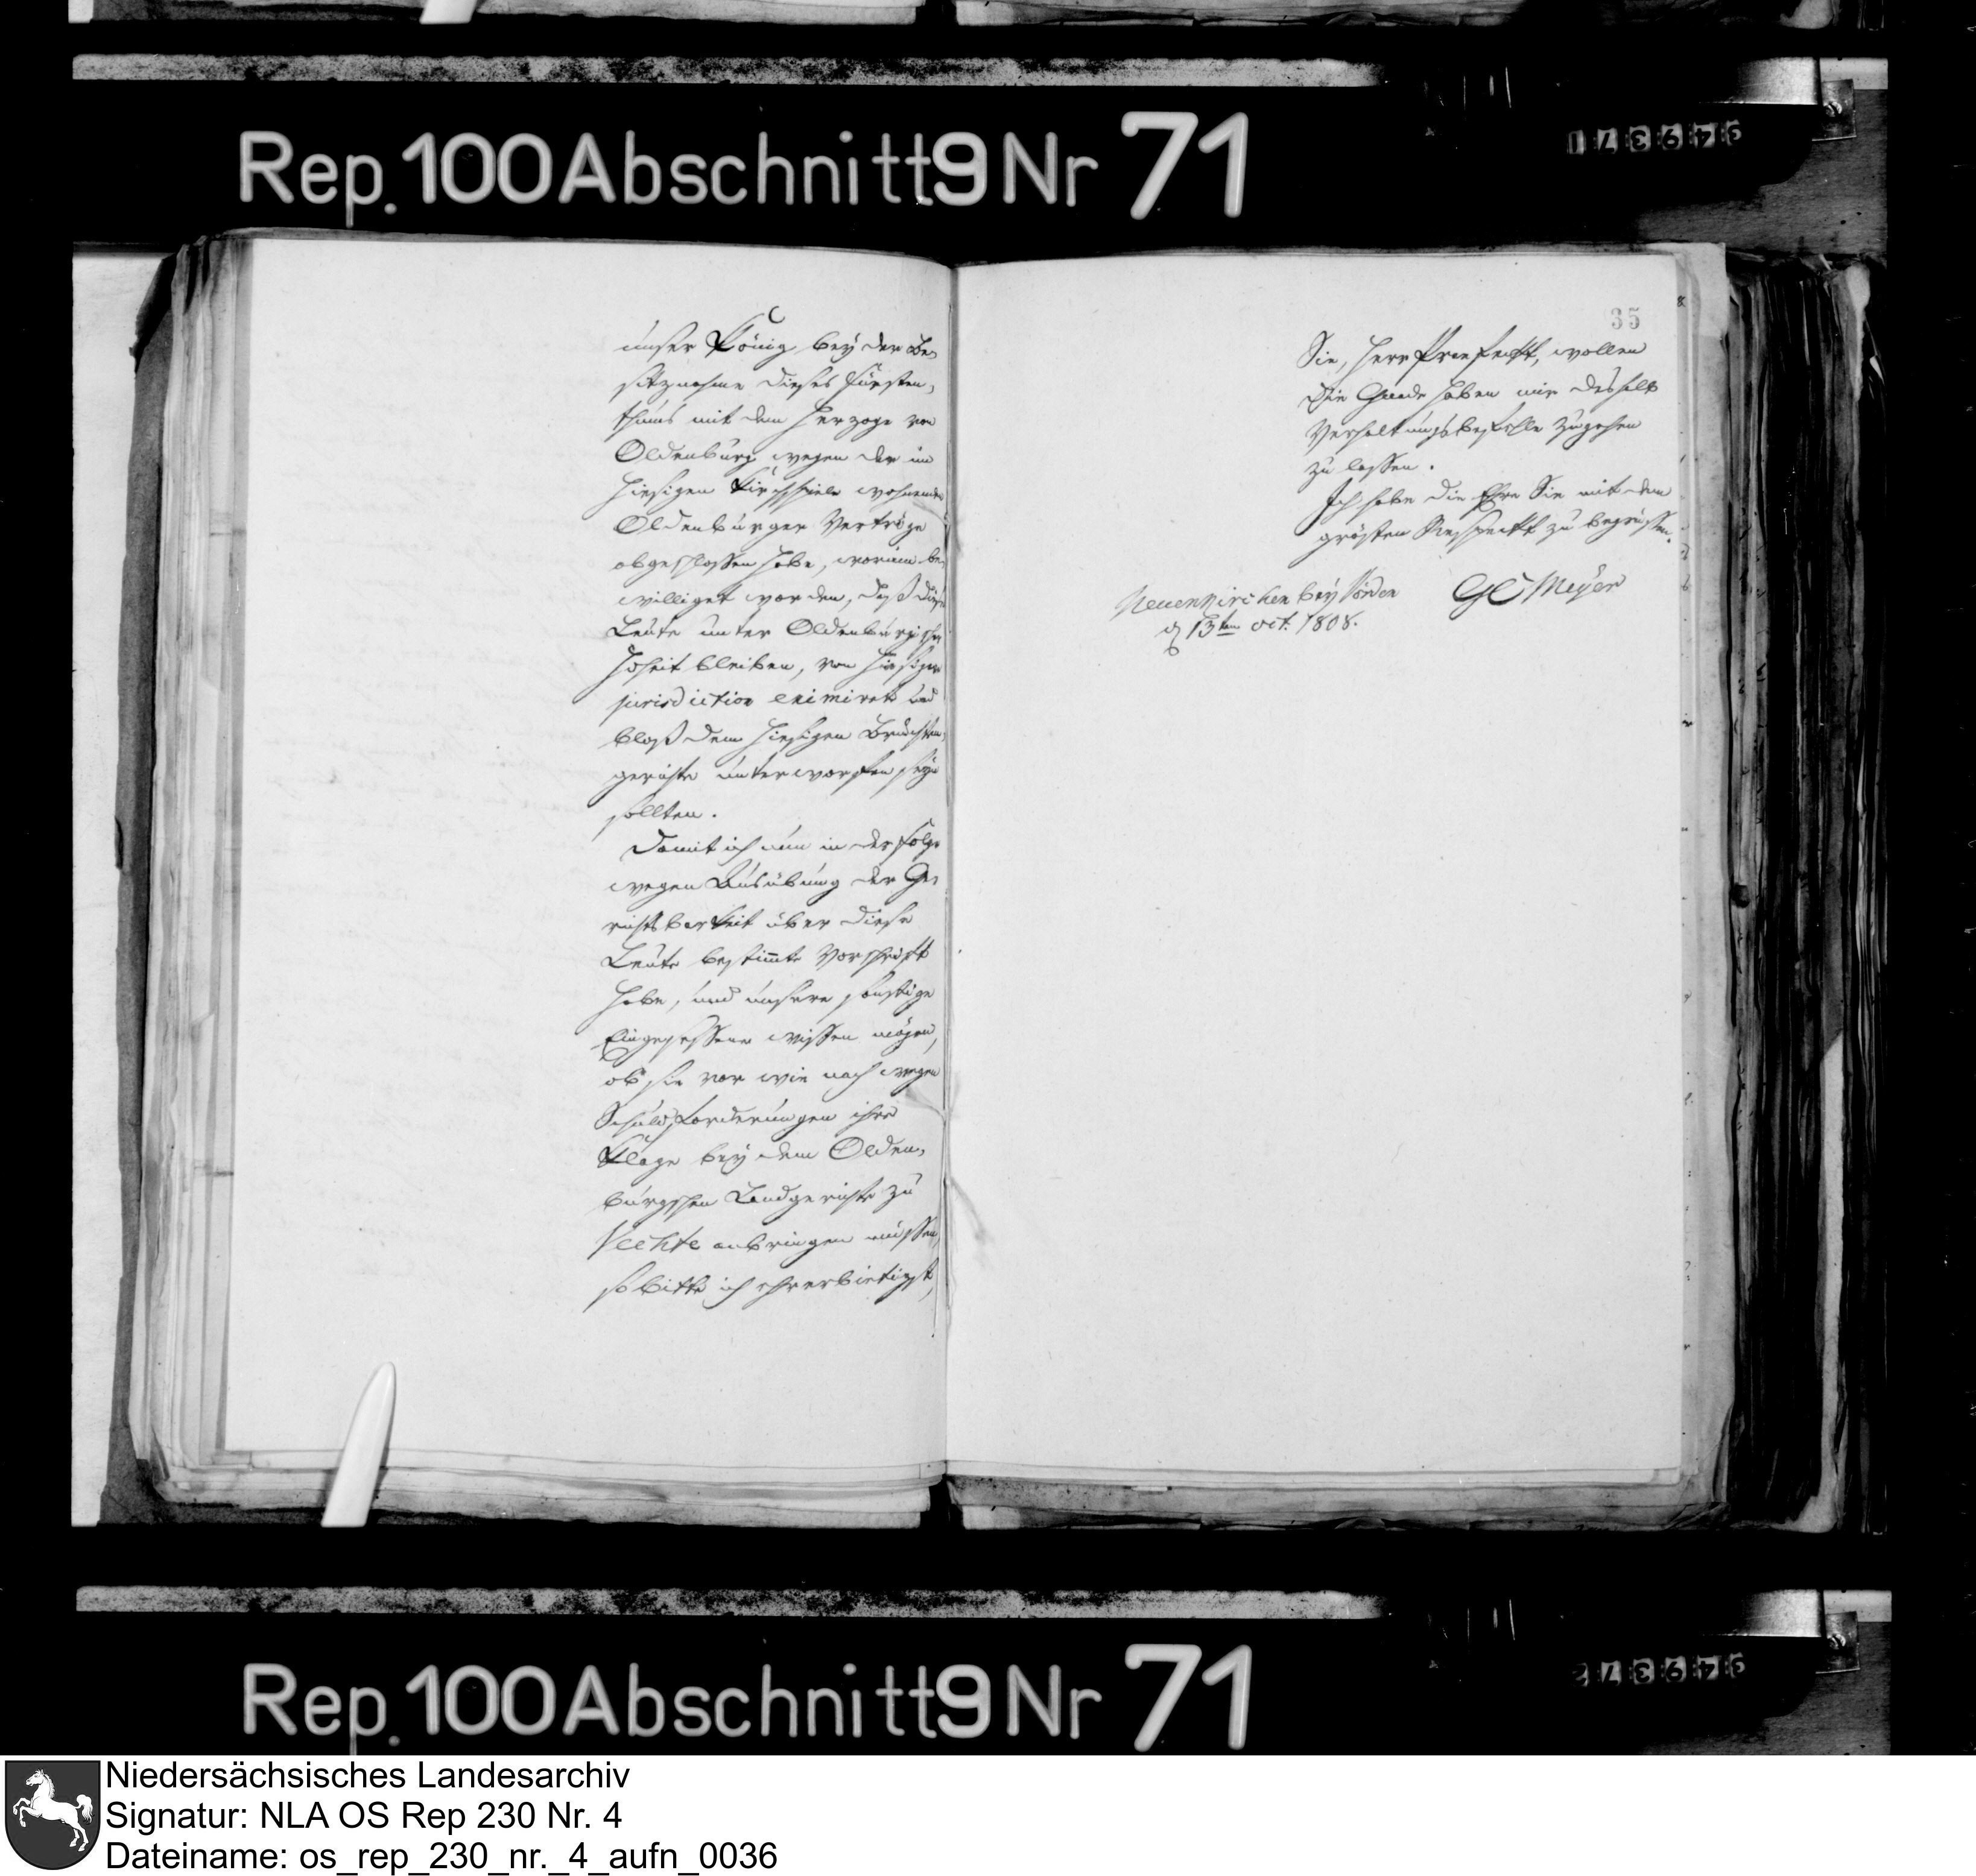 Rep. 100 Abschnitt 9 Nr 71
349371
unser König bey der Be-
sitznahme dieses Fürsten-
thums mit dem Herzoge von
Oldenburg wegen der im
hiesigen Kirchspiele wohnenden
Oldenburger Verträge
abgeschlossen habe, worinn be-
williget worden, daß diese
Leute unter Oldenburgischer
Hoheit bleiben, von hiesiger
jurisdiction eximiret und
bloß dem hiesigen Brüchten-
gerichte unterworfen seyn
sollten.
Damit ich nun in der Folge
wegen Ausübung der Ge-
richtsbarkeit über diese
Leute bestimte Vorschrift
habe, und unsere sonstige
Eingesessene wissen mögen,
ob sie vor wie nach wegen
Schuldforderungen ihre
Klage bey dem Olden-
burgschen Landgerichte zu
Vechte anbringen müssen,
so bitte ich ehrerbietigst,
35
Sie, Herr Praefectt, wollen
die Gnade haben mir deshalb
Verhaltungsbefehle zugehen
zu lassen.
Ich habe die Ehre Sie mit dem
grösten Respectt zu begrüssen.
Neuenkirchen bey Vörden
d 13ten oct. 1808.
GC Meyer
Rep. 100 Abschnitt 9 Nr 71
349372
Niedersächsisches Landesarchiv
Signatur: NLA OS Rep 230 Nr. 4
Dateiname: os_rep_230_nr._4_aufn_0036